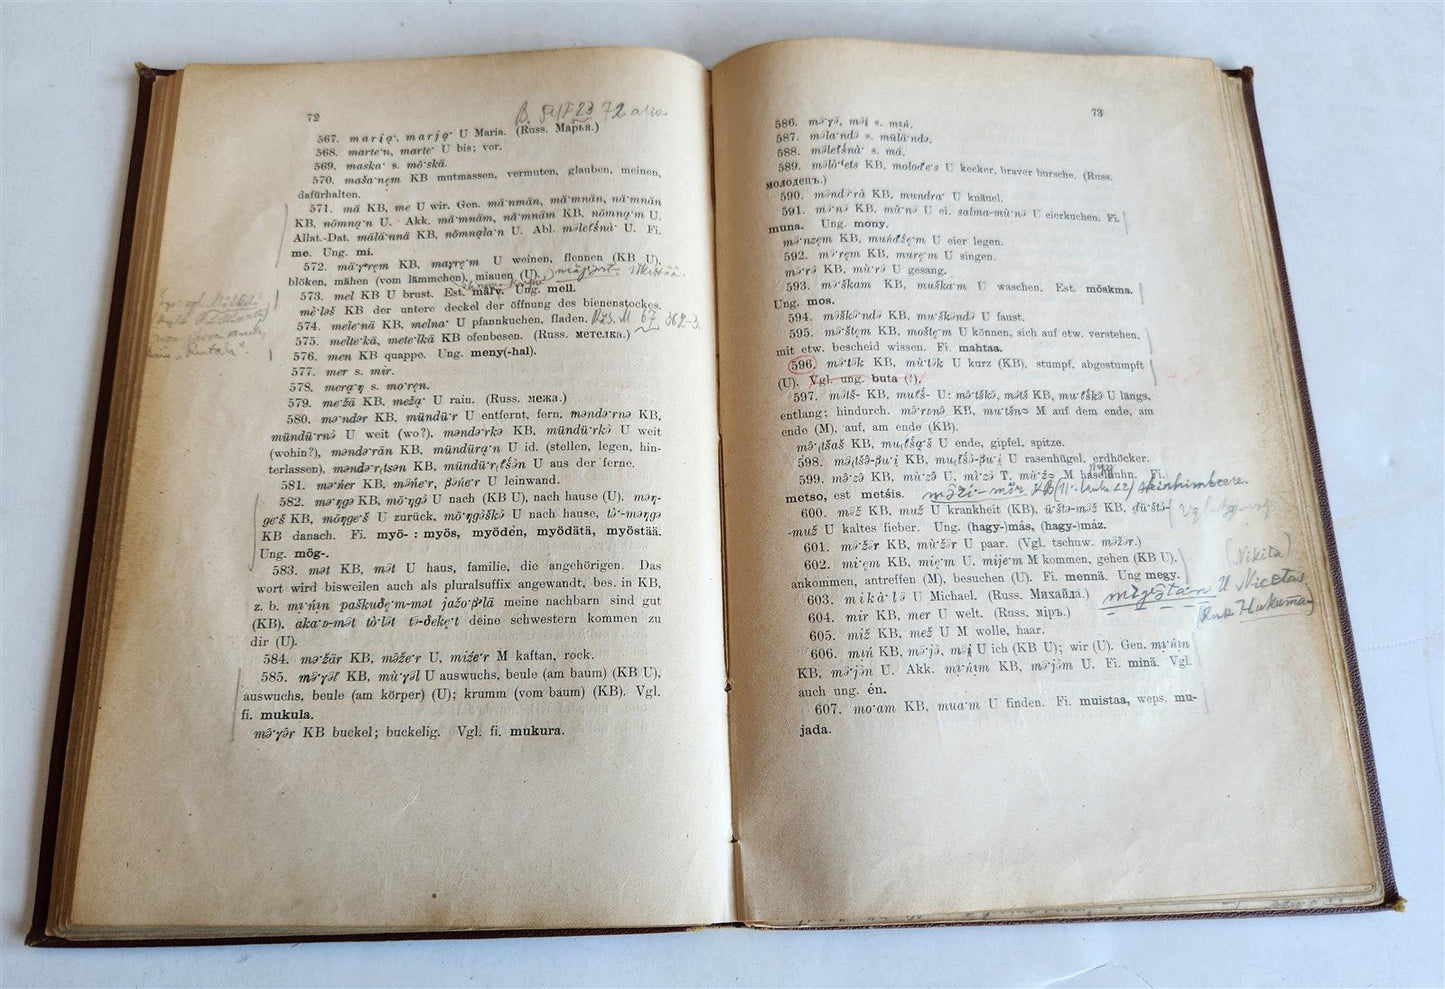 72
B. 72
567. marja·, marja̮· U Maria. (Russ. Марья.)
568. marte·n, marte· U bis; vor.
569. maska· s. mö·skä.
570. maša·ne̮m KB mutmassen, vermuten, glauben, meinen,
dafürhalten.
571. mä KB, me U wir. Gen. mä·nmän, mä·mnän, nä·mnän
KB, nōmna̮·n U. Akk. mä·mnäm, nä·mnäm KB, nōmna̮·m U.
Allat.-Dat. mälä·nnä KB, nōmna̮la·n U. Abl. mələtš́nà· U. Fi.
me. Ung. mi.
572. mä·γre̮m KB, maγre̮·m U weinen, flennen (KB U),
blöken, mähen (vom lämmchen), miauen (U).
573. mel KB U brust. Est. märv. Ung. mell.
mè·ləš KB der untere deckel der öffnung des bienenstockes.
574. mele·nä KB, melna· U pfannkuchen, fladen. M 67 362-3.
575. melte·kä, mete·lkä KB ofenbesen. (Russ. метелка.)
576. men KB quappe. Ung. meny(-hal).
577. mer s. mir.
578. mera̮·η s. mo·re̮n.
579. me·žä KB, meža̮· U rain. (Russ. межа.)
580. mə·ndər KB, mündü·r U entfernt, fern, məndə·rnə KB,
mündü·rnə̀ U weit (wo?), məndə·rkə KB, mündü·rkə̀ U weit
(wohin?), məndə·rän KB, mündüra̮·n U id. (stellen, legen, hin-
terlassen), məndə·rı̨tsən KB, mündü·rı̨tš́ə̀n U aus der ferne.
581. mə·ńer KB, məńe·r, βəńe·r U leinwand.
582. mə·ηgə KB, mö·ηgə̀ U nach (KB U), nach hause (U). məη-
ge·š KB, möηge·š U zurück, mö·ηgə̀škə̀ U nach hause, tə̀·-məηgə
KB danach. Fi. myö- : myös, myöden, myödätä, myöstää.
Ung. mög-.
583. mət KB, mə̀t U haus, familie, die angehörigen. Das
wort wird bisweilen auch als pluralsuffix angewandt, bes. in KB,
z. b. mı̨·ńın paškuðe̮·m-mət jažo·βlä meine nachbarn sind gut
(KB), aka·ʋ-mə̀t tò·lə̀t tə̀-ðeke̮·t deine schwestern kommen zu
dir (U).
584. mə·žär KB, mə̀že·r U, miže·r M kaftan, rock.
585. mə̂·γəl KB, mù·γə̀l U auswuchs, beule (am baum) (KB U),
auswuchs, beule (am körper) (U); krumm (vom baum) (KB). Vgl.
fi. mukula.
mə̂·γə̂r KB buckel; buckelig. Vgl. fi. mukura.
73
586. mə̂·γə̂, məi̯ s. miń.
587. məla·ndə̂ s. müla·ndə̀.
588. mələtš́nà· s. mä.
589. məlò·i̯ets KB, molođe·s U kecker, braver bursche. (Russ.
молодецъ.)
590. mə̂ndə̂·rà KB, mundra· U knäuel.
591. mə̂·nə̂ KB, mù·nə̀ U ei. salma-mù·nə̀ U eierkuchen. Fi.
muna. Ung. mony.
mə̂·nze̮m KB, munđže̮·m U eier legen.
592. mə̂·re̮m KB, mure̮·m U singen.
mə̂·rə̂ KB, mù·rə̀ U gesang.
593. mə̂·škam KB, muška·m U waschen. Est. mõskma.
Ung. mos.
594. mə̂škə̂·ndə̂ KB, mu·škə̀ndə̀ U faust.
595. mə̂·šte̮m KB, mošte̮·m U können, sich auf etw. verstehen,
mit etw. bescheid wissen. Fi. mahtaa.
596. mə̂·tə̂k KB, mù·tə̀k U kurz (KB), stumpf, abgestumpft
(U). Vgl. ung. buta (?).
597. mə̂tš- KB, mutš́- U: mə̂·tškə̂, mə̂tš KB, mu·tš́kə̀ U längs,
entlang; hindurch. mə̂·rʋnə̂ KB, mu·tšnə M auf dem ende, am
ende (M), auf, am ende (KB).
mə̂·ı̨tšaš KB, muı̨tš́a̮·š U ende, gipfel, spitze.
598. mə̂ı̨tšə̂-βu·i̯ KB, muı̨tš́ə̀-βu·i̯ U rasenhügel, erdhöcker.
599. mə̂·zə̂ KB, mù·zə̀ U, mi·zə̀ T, mù·žə M haselhuhn. Fi.
metso, est metśis. mə̂zi- mör KB Steinhimbeere.
600. mə̂ž KB, muž U krankheit (KB), ü·štə-mə̂ž KB, ŭü·štə̀-
-muž U kaltes fieber. Ung. (hagy-)más, (hagy-)máz.
601. mə̂·žə̂r KB, mù·žə̀r U paar. (Vgl. tschuw. mə̂žə̂r.)
602. mi·e̮m KB, mie̮·m U, mije·m M kommen, gehen (KB U),
ankommen, antreffen (M), besuchen (U). Fi. mennä. Ung megy. (Nikita)
603. mikà·lə̀ U Michael. (Russ. Михайла.) U Nicetas
604. mir KB, mer U welt. (Russ. міръ.)
605. miž KB, mež U M wolle, haar.
606. miń KB, mə̂·jə̂, məi̯ U ich (KB U); wir (U). Gen. mı̨·ńın
KB, mə̂·jə̀n U. Akk. mı̨·ńım KB, mə̂·jə̀m U. Fi. minä. Vgl.
auch ung. én.
607. mo·am KB, mua·m U finden. Fi. muistaa, weps. mu-
jada.